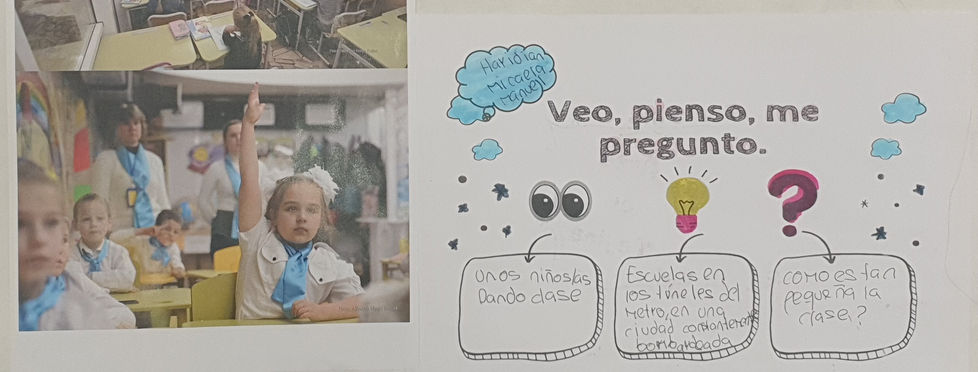 Haridian
Micaela
Manuel
Veo, pienso, me
pregunto.
unos niños/as
Dando clase
Escuelas en
los túneles del
Metro, en una
ciudad constantemente
bombardeada
como es tan
pequeña la
clase?